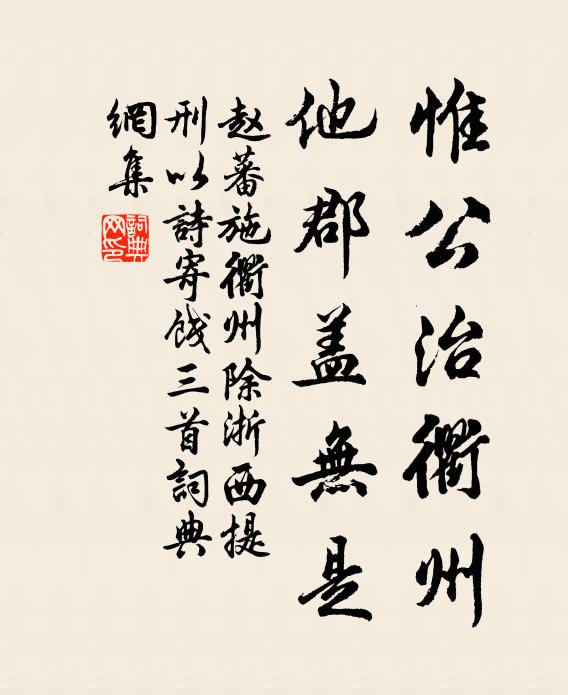 惟公治衢州
他郡盖無是
赵蕃施衢州除浙西提
刑以詩寄餞三首詞典
網集
詞典网印